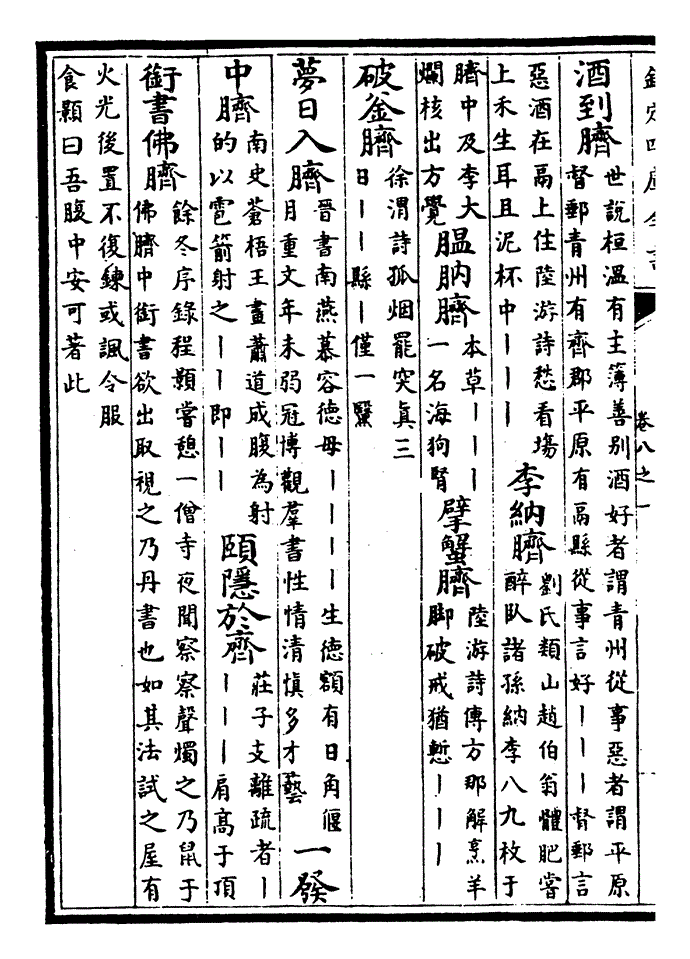 欽定四庫全書
卷八之一
酒到臍
世說桓溫有主簿善别酒好者謂青州從事惡者謂平原
督郵青州有齊郡平原有鬲縣從事言好丨丨丨督郵言
惡酒在鬲上住陸游詩愁看塲
上禾生耳且泥杯中丨丨丨
李納臍
劉氏類山趙伯翁體肥嘗
醉臥諸孫納李八九枚于
臍中及李大
爛核出方覺
膃肭臍
本草丨丨丨
一名海狗腎
擘蟹臍
陸游詩傳方那解烹羊
脚破戒猶慙丨丨丨
破釜臍
徐渭詩孤烟罷突真三
日丨丨縣丨僅一鬟
夢日入臍
晉書南燕慕容德母丨丨丨丨生德額有日角偃
月重文年未弱冠博觀羣書性情清慎多才藝
一發
中臍
南史蒼梧王畫蕭道成腹為射
的以雹箭射之丨丨即丨丨
頤隱於齊
莊子支離疏者丨
丨丨丨肩高于頂
銜書佛臍
餘冬序錄程顥嘗憩一僧寺夜聞察察聲燭之乃鼠于
佛臍中銜書欲出取視之乃丹書也如其法試之屋有
火光後置不復鍊或諷令服
食顥曰吾腹中安可著此